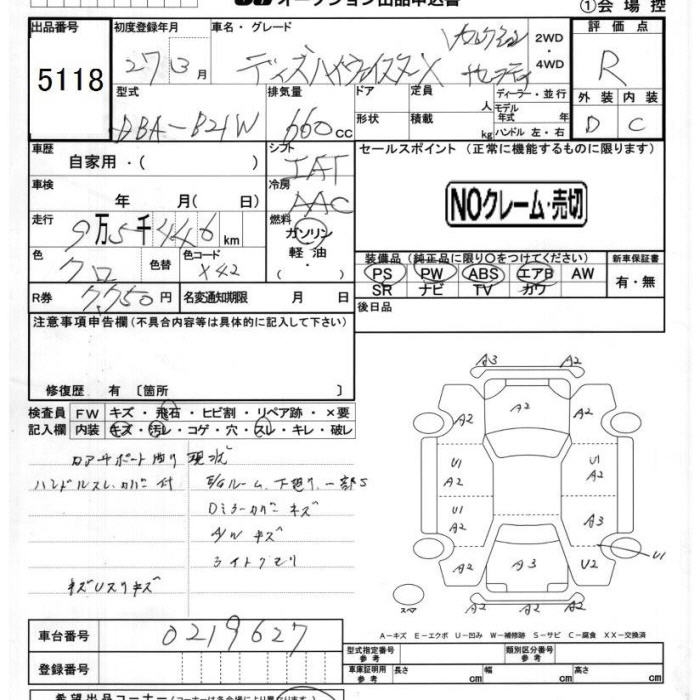 オークション出品申込書
①会場控
出品番号 初度登録年月 車名・グレード 評価点
5118 27 3月 デイズハイウェイスターX 2WD・4WD R
型式 排気量 ドア 定員 人 ディーラー・並行
外装 内装
DBA-B21W 660cc 形状 積載 kg モデル年式 年 ハンドル 左・右 D C
車歴 自家用・( ) シフト IAT セールスポイント (正常に機能するものに限ります)
車検 年 月( 日) 冷房 AAC NOクレーム・売切
走行 9万5千446km 燃料 ガソリン・軽油・
色 クロ 色替 色コード X42
装備品 (純正品に限り○をつけてください) 新車保証書
PS PW ABS エアB AW 有・無
SR ナビ TV カワ
R券 7,750円 名変通知期限 月 日 後日品
注意事項申告欄 (不具合内容等は具体的に記入して下さい)
修復歴 有 〔箇所 〕
検査員 FW キズ・飛石・ヒビ割・リペア跡・×要
記入欄 内装 キズ・汚レ・コゲ・穴・スレ・キレ・破レ
ハンドルスレ、カバー付
Dミラーカバーキズ
A/W キズ
ライトクモリ
A3 A2
A2 A2 A2
U1 A2 U1 A2
U1 A2 A3
A2 A3 U2 U1
A2 A2
スペア
A-キズ E-エクボ U-凹み W-補修跡 S-サビ C-腐食 XX-交換済
車台番号 0219627
型式指定番号 参考 類別区分番号 参考
登録番号 車庫証明用 参考 長さ cm 幅 cm 高さ cm
希望出品コーナー